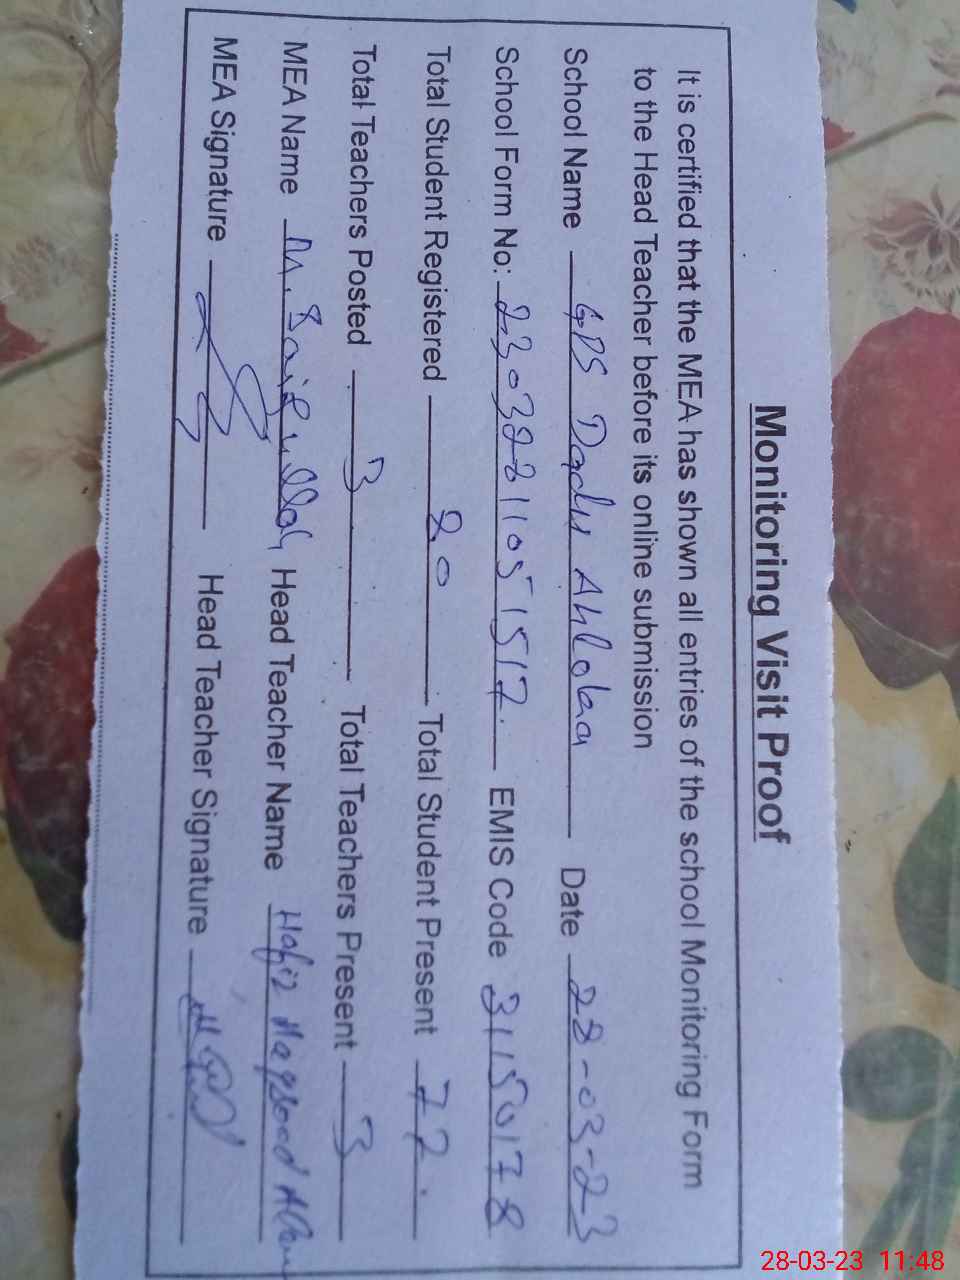 Monitoring Visit Proof
It is certified that the MEA has shown all entries of the school Monitoring Form
to the Head Teacher before its online submission
School Name GPS Dadu Date 28-03-23
School Form No: EMIS Code 31150178
Total Student Registered 80 Total Student Present 72
Total Teachers Posted 3 Total Teachers Present 3
MEA Name M. Saifullah Head Teacher Name Hafiz Maqsood
MEA Signature Head Teacher Signature
28-03-23 11:48